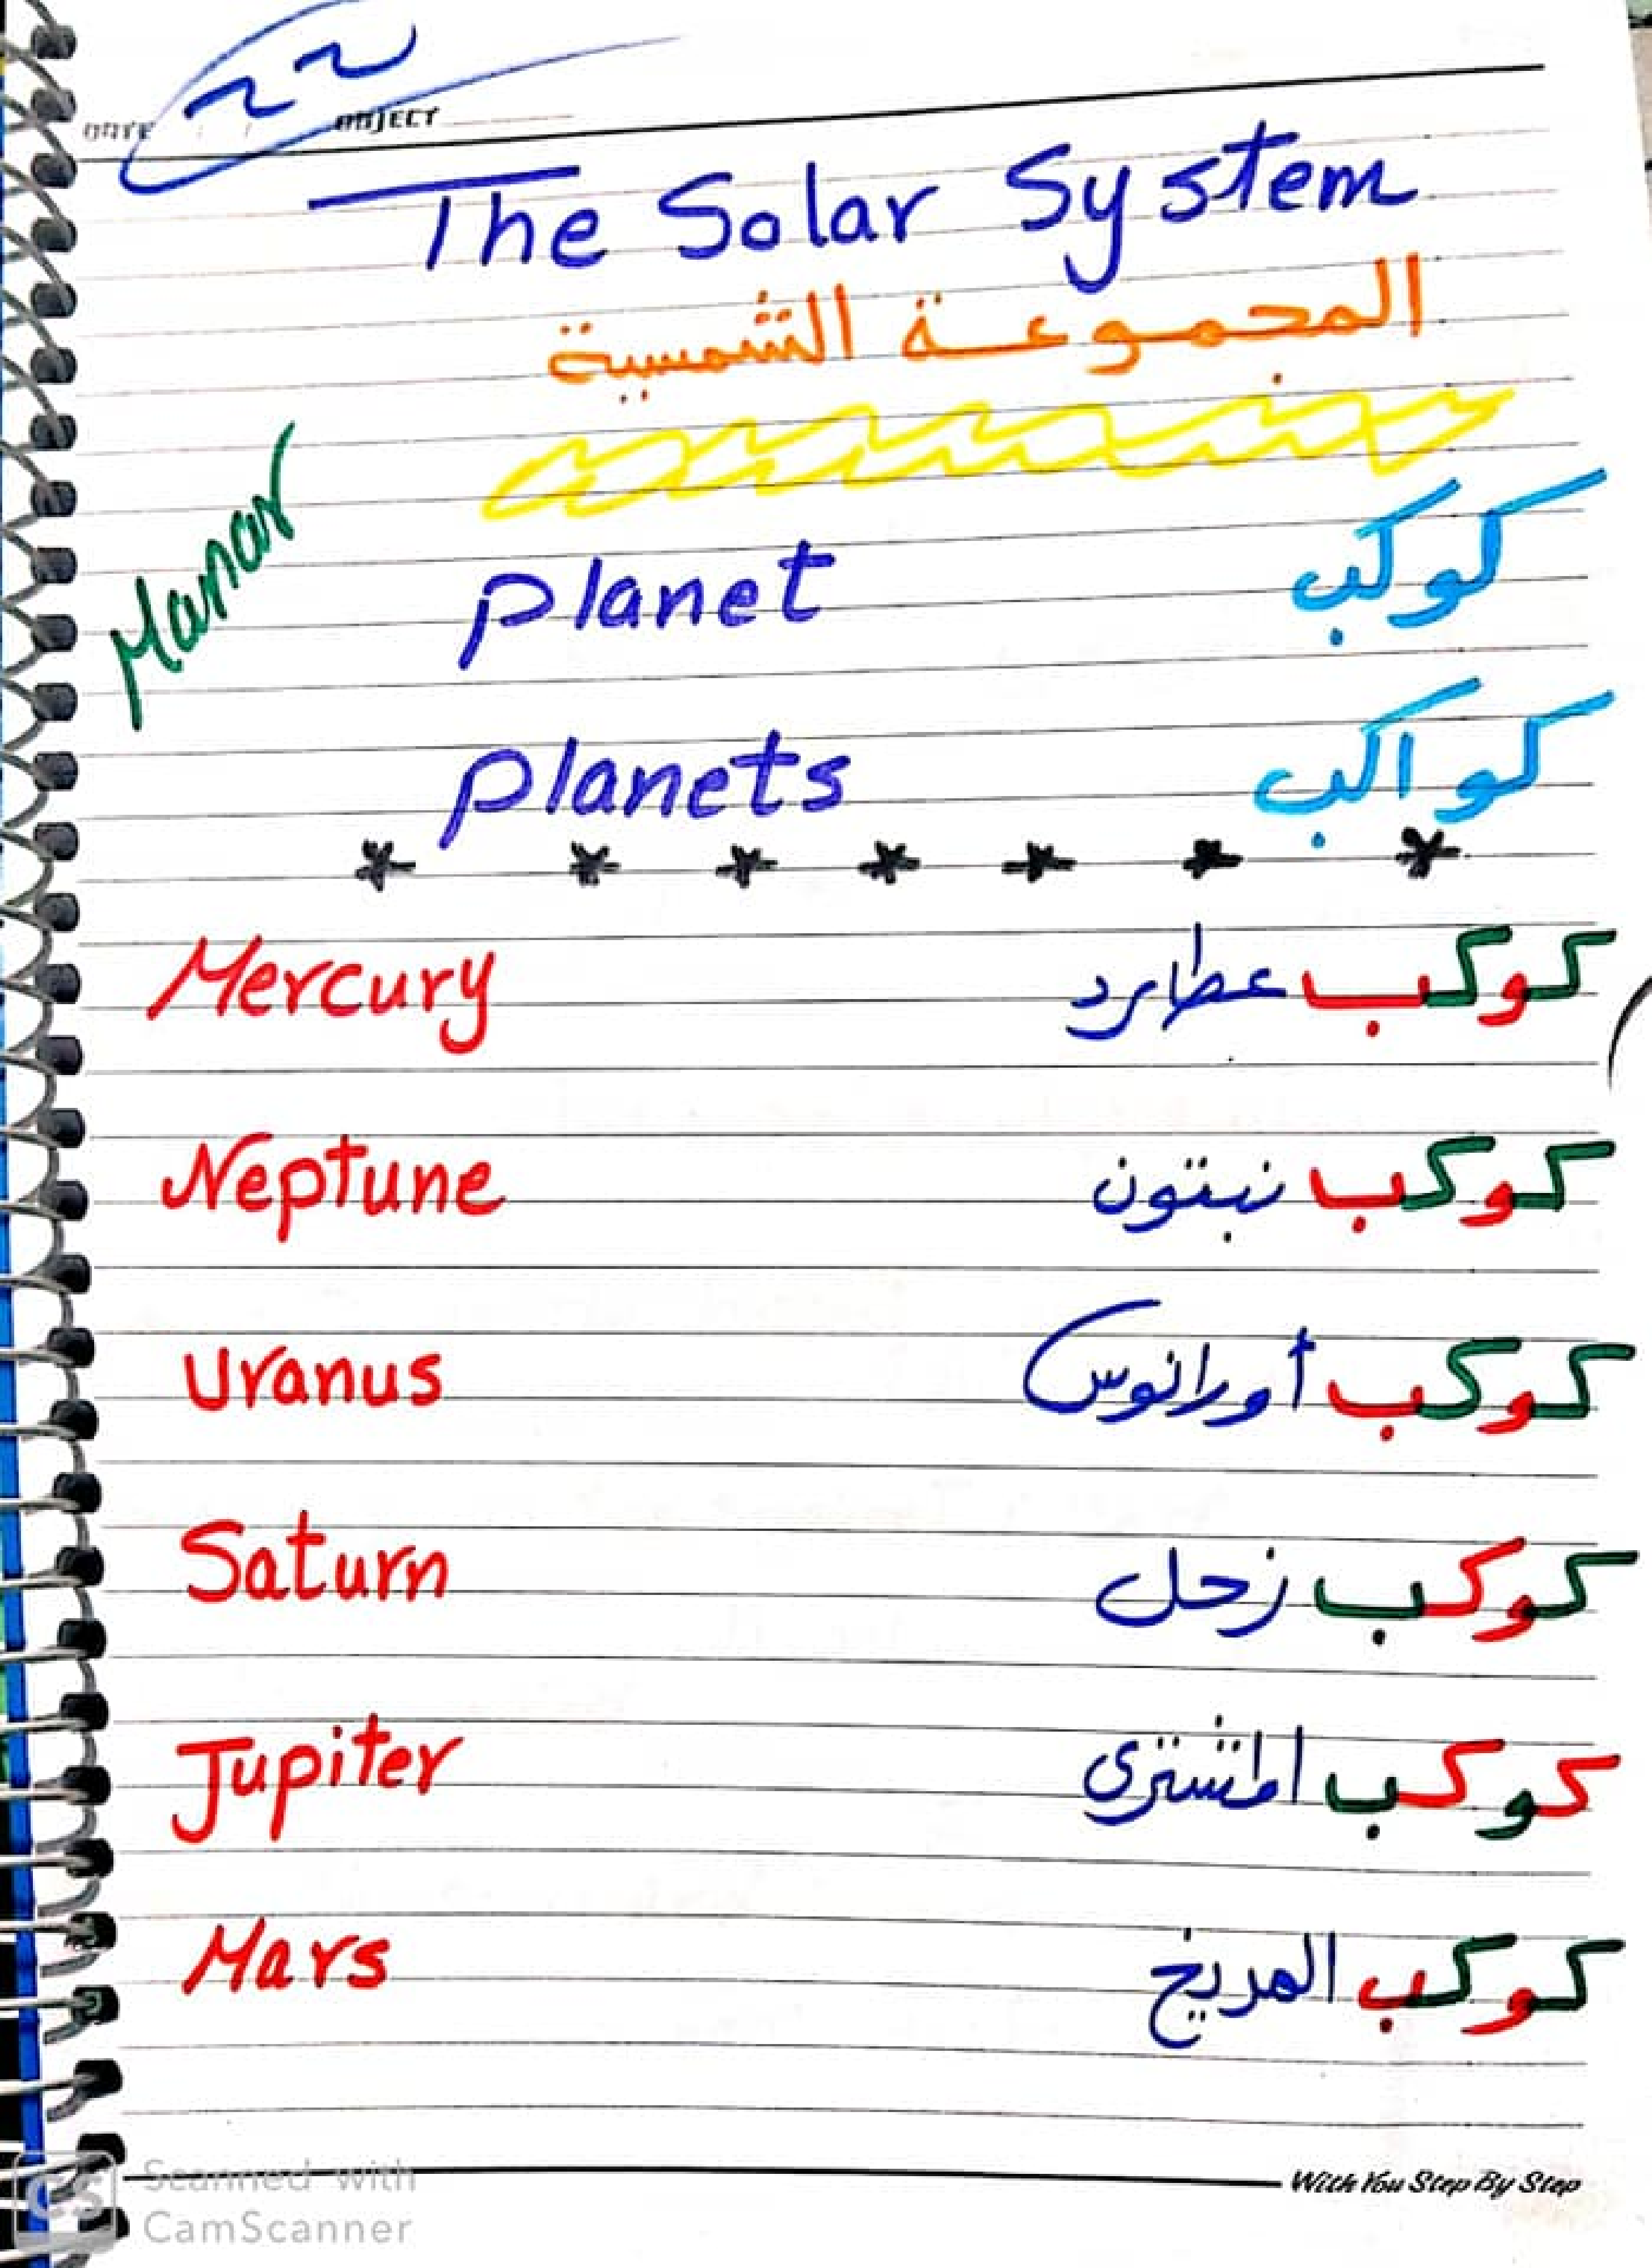 ٢٢
DATE / / SUBJECT
The Solar System
المجموعة الشمسية
Manar
planet كوكب
planets كواكب
* * * * * * *
Mercury كوكب عطارد
Neptune كوكب نبتون
Uranus كوكب أورانوس
Saturn كوكب زحل
Jupiter كوكب المشترى
Mars كوكب المريخ
With You Step By Step
CS Scanned with
CamScanner